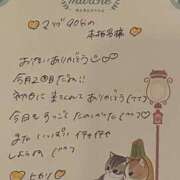 marché
♡マブ90分の
本指名様♡
お会いありがとう
今月2回目だね!!
初日に来てくれてありがとう(^^)
今日もずっごくたのしかった(^^)
また いっぱい イチャイチャ
しようね(^^)
♡ヒカリ♡